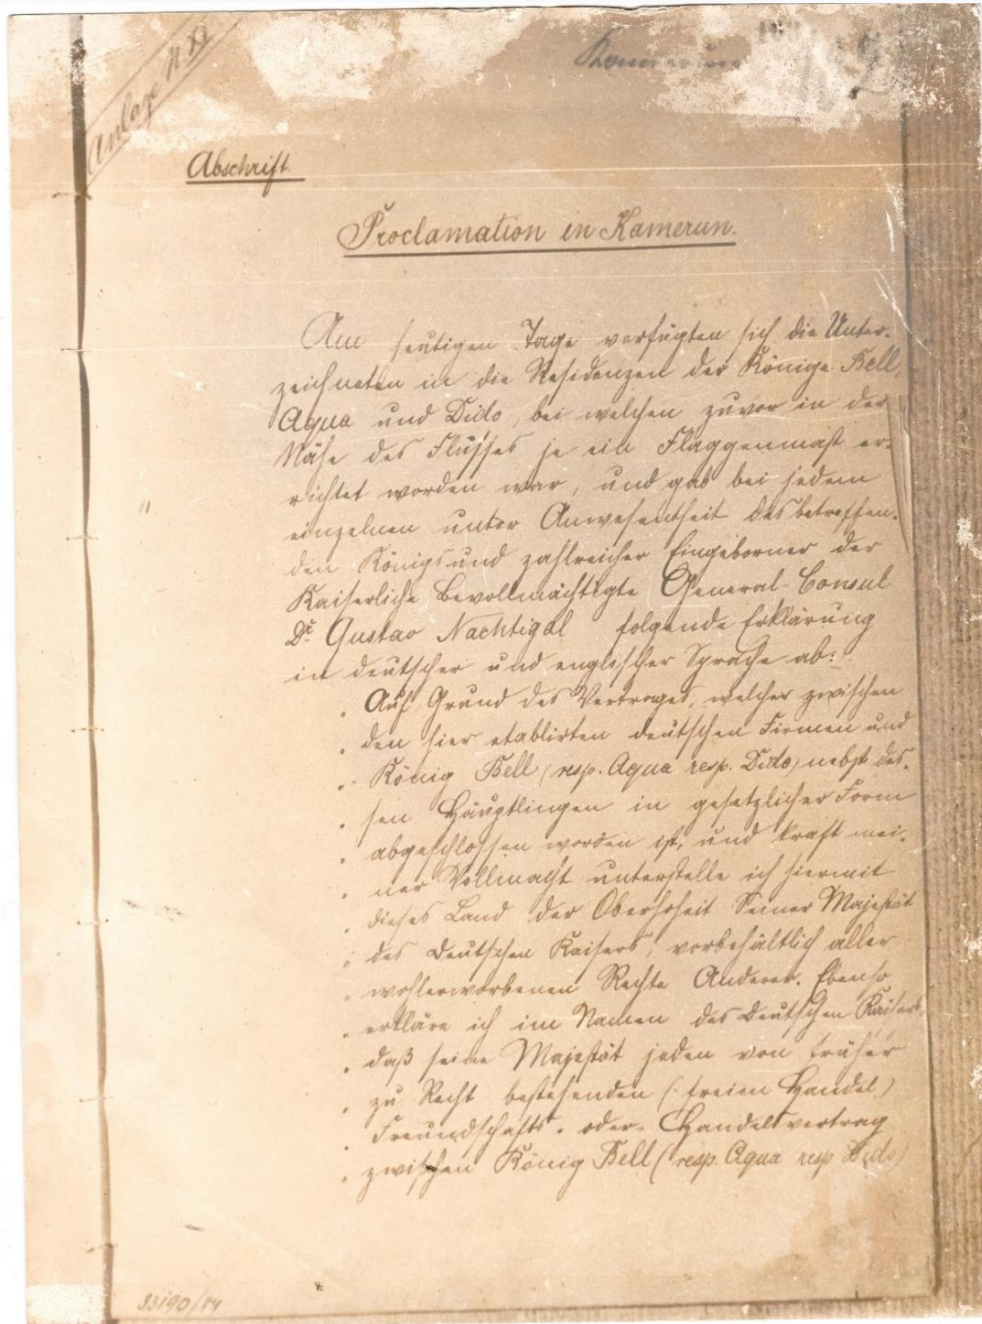 Anlage N XI
Abschrift
Proclamation in Kamerun.
Am heutigen Tage verfügten sich die Unter-
zeichneten in die Residenzen der Könige Bell,
Aqua und Dido, bei welchen zuvor in der
Nähe des Flusses je ein Flaggenmast er-
richtet worden war, und gab bei jedem
einzelnen unter Anwesentheit des betreffen-
den Königs und zahlreicher Eingeborner der
Kaiserliche Bevollmächtigte General-Consul
Dr. Gustav Nachtigal folgende Erklärung
in deutscher und englischer Sprache ab:
„Auf Grund des Vertrages, welcher zwischen
„den hier etablirten deutschen Firmen und
„König Bell (resp. Aqua resp. Dido) nebst des-
„sen Häuptlingen in gesetzlicher Form
„abgeschlossen worden ist, und kraft mei-
„ner Vollmacht unterstelle ich hiermit
„dieses Land der Oberhoheit Seiner Majestät
„des Deutschen Kaisers, vorbehältlich aller
„wohlerworbenen Rechte Anderer. Ebenso
„erkläre ich im Namen des Deutschen Kaisers,
„daß seine Majestät jeden von früher
„zu Recht bestehenden (freien Handel)
„Freundschafts- oder Handelsvertrag
„zwischen König Bell (resp. Aqua resp Dido)
33190/84